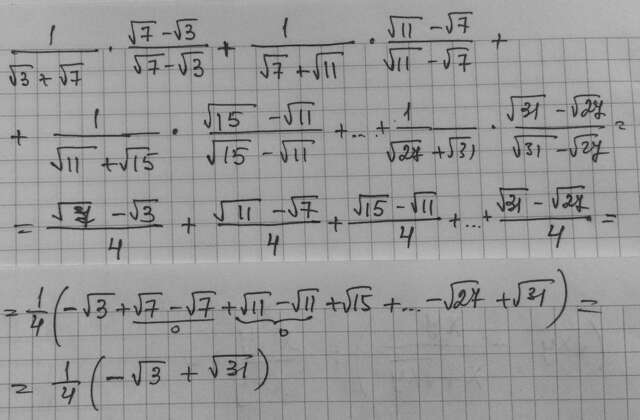 1/(√3 + √7) · (√7 - √3)/(√7 - √3) + 1/(√7 + √11) · (√11 - √7)/(√11 - √7) +
+ 1/(√11 + √15) · (√15 - √11)/(√15 - √11) + ... + 1/(√27 + √31) · (√31 - √27)/(√31 - √27) =
= (√7 - √3)/4 + (√11 - √7)/4 + (√15 - √11)/4 + ... + (√31 - √27)/4 =
= 1/4 (-√3 + √7 - √7 + √11 - √11 + √15 + ... - √27 + √31) =
0 0
= 1/4 (-√3 + √31)